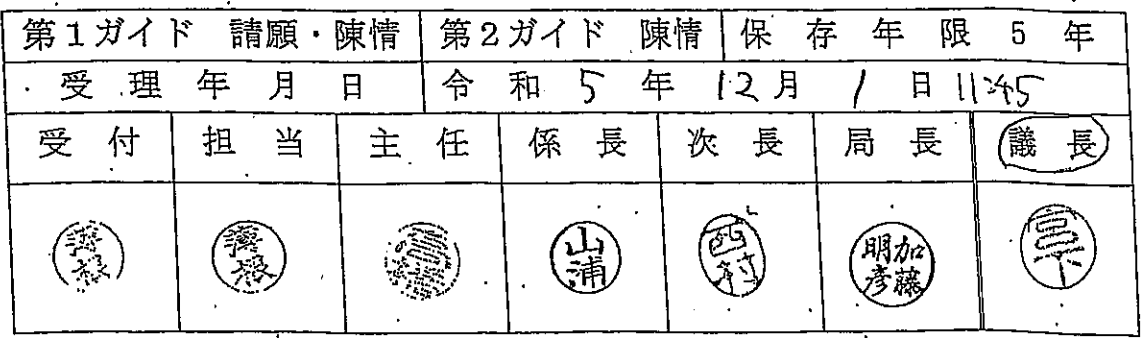 第1ガイド 請願・陳情 第2ガイド 陳情 保存年限 5年
受理年月日 令和5年12月1日 11:45
受付 担当 主任 係長 次長 局長 議長
山浦 西村 加藤明彦 宮下